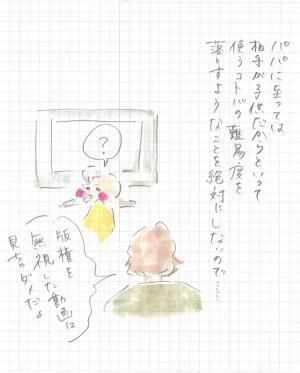 パパに至っては
相手が子供だからといって
使うコトバの難易度を
落とすようなことを絶対にしないので……
?
版権を
無視した動画は
見ちゃダメだよ